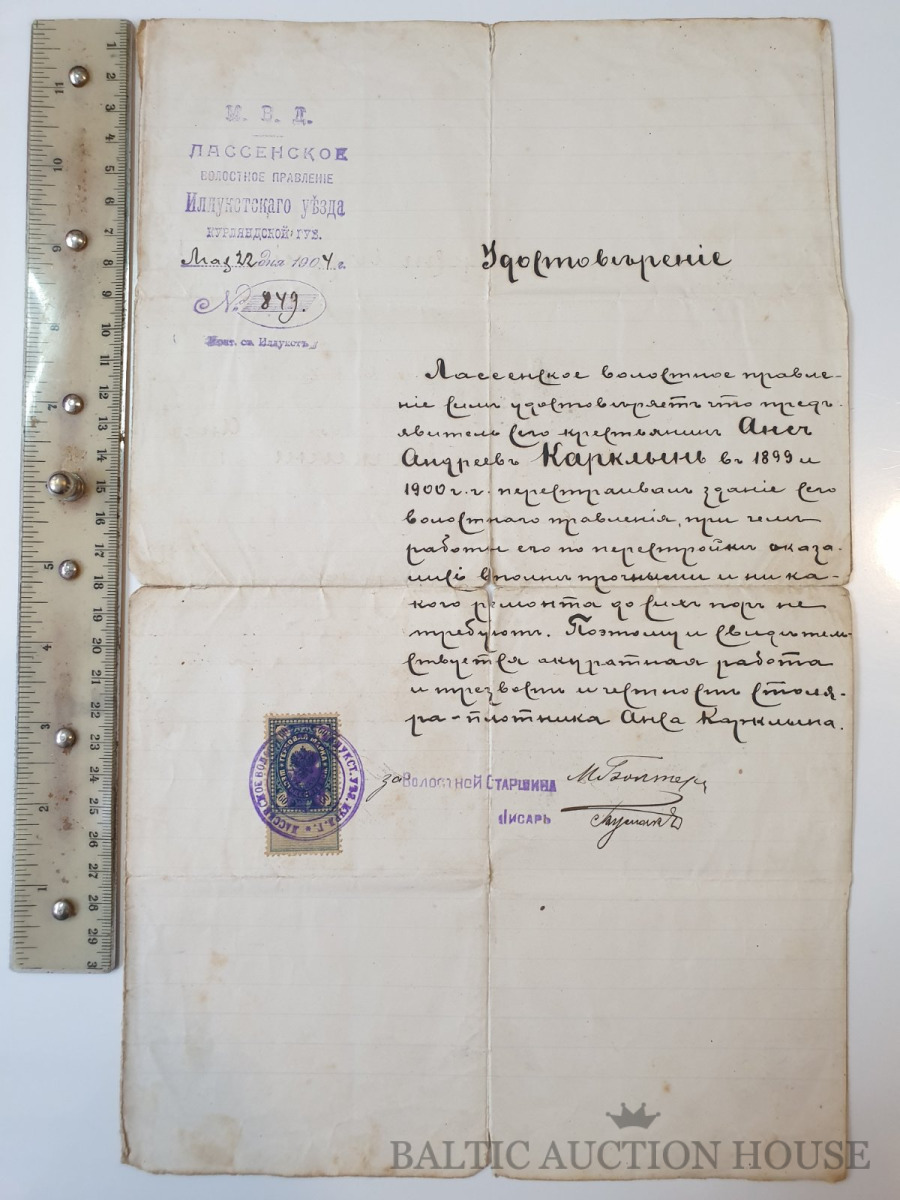 М. В. Д.
ЛАССЕНСКОЕ
ВОЛОСТНОЕ ПРАВЛЕНІЕ
Иллукстскаго уѣзда
КУРЛЯНДСКОЙ ГУБ.
Мая 22 дня 1904 г.
№ 849.
Почт. ст. Иллукстъ
Удостовѣреніе
Лассенское волостное правле-
ніе симъ удостовѣряетъ что предъ-
явитель сего крестьянинъ Ансъ
Андреевъ Карклынь въ 1899 и
1900 г.г. перестраивалъ зданіе сего
волостнаго правленія, при чемъ
работы его по перестройкѣ оказа-
лись вполнѣ прочными и ника-
кого ремонта до сихъ поръ не
требуютъ. Поэтому и свидѣтель-
ствуется акуратная работа
и трезвость и честность столя-
ра-плотника Анса Карклына.
за Волостной Старшина
Писарь
ГЕРБОВАЯ МАРКА
BALTIC AUCTION HOUSE